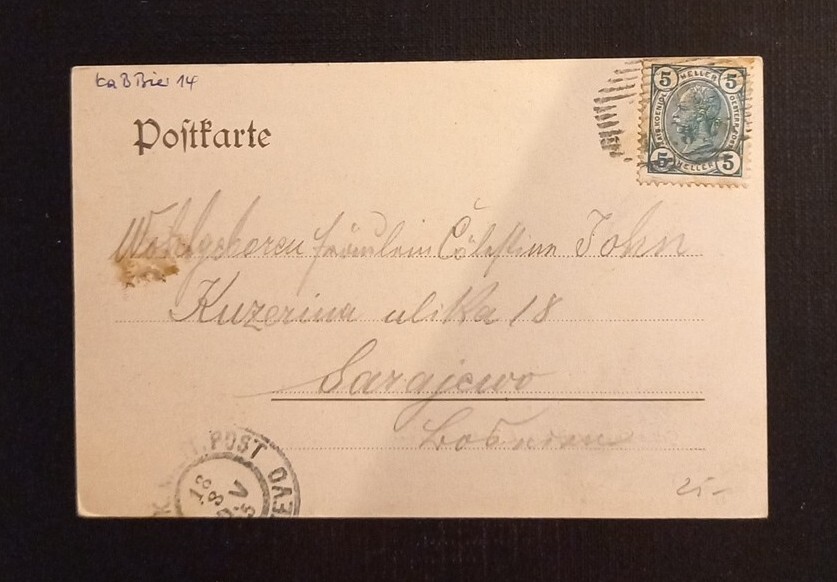 Ka B Bier 14
Postkarte
5 HELLER 5
5 HELLER 5
Wohlgeboren Fräulein Cölestine John
Kuzerina ulika 18
Sarajewo
Bosnien
POST
18
8
V
25-